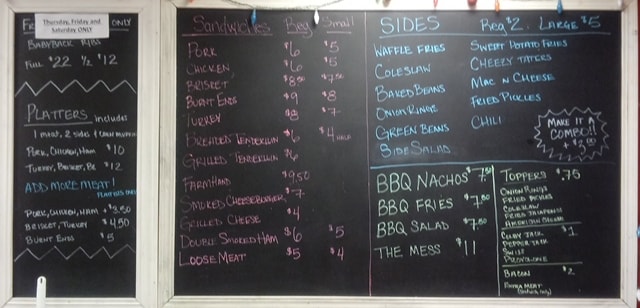 Thursday, Friday and
Saturday ONLY
ONLY
BABYBACK RIBS
Full $22 ½ $12
PLATTERS includes
1 meat, 2 sides +
Pork, Chicken, Ham $10
Turkey, Brisket, BE $12
ADD MORE MEAT!
PLATTERS ONLY
Pork, Chicken, Ham + $3.50
Brisket, Turkey $4.50
Burnt Ends $5
Sandwiches Reg Small
PORK $6 $5
CHICKEN $6 $5
BRISKET $8.50 $7.50
BURNT ENDS $9 $8
TURKEY $8 $7
BREADED TENDERLOIN $6 $4
GRILLED TENDERLOIN $6
FARMHAND $9.50
SMOKED CHEESEBURGER $7
GRILLED CHEESE $4
DOUBLE SMOKED HAM $6 $5
LOOSE MEAT $5 $4
SIDES Reg $2. LARGE $5
WAFFLE FRIES
COLESLAW
BAKED BEANS
ONION RINGS
GREEN BEANS
SIDE SALAD
SWEET POTATO FRIES
CHEEZY TATERS
MAC N CHEESE
FRIED PICKLES
CHILI
MAKE IT A
COMBO!!
BBQ NACHOS $7.50
BBQ FRIES $7.50
BBQ SALAD $7.50
THE MESS $11
TOPPERS $.75
ONION RINGS
FRIED PICKLES
COLESLAW
FRIED JALAPENOS
AMERICAN CHEESE
COLBY JACK $1
PEPPER JACK
SWISS
PROVOLONE
BACON $2
EXTRA MEAT